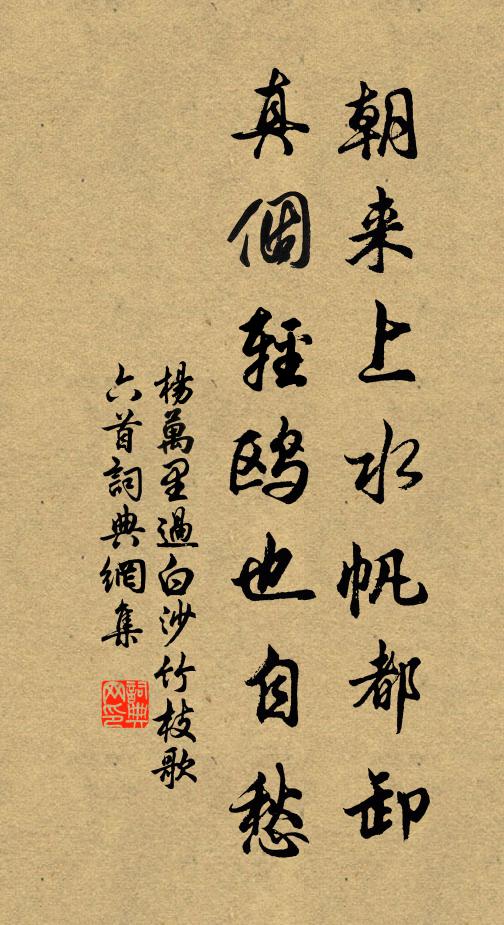 朝来上水帆都卸
真個輕鸥也自愁
楊萬里過白沙竹枝歌
六首詞典網集
詞典网印